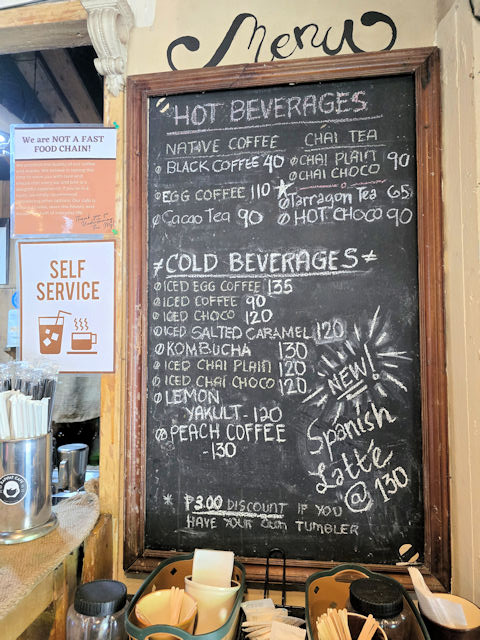 Menu
HOT BEVERAGES
NATIVE COFFEE
BLACK COFFEE 40
EGG COFFEE 110
Cacao Tea 90
CHAI TEA
CHAI PLAIN 90
CHAI CHOCO
Tarragon Tea 65
HOT CHOCO 90
COLD BEVERAGES
ICED EGG COFFEE 135
ICED COFFEE 90
ICED CHOCO 120
ICED SALTED CARAMEL 120
KOMBUCHA 130
ICED CHAI PLAIN 120
ICED CHAI CHOCO 120
LEMON
YAKULT - 120
PEACH COFFEE
- 130
NEW!
Spanish
Latte
@ 130
* ₱3.00 DISCOUNT IF YOU
HAVE YOUR OWN TUMBLER
We are NOT A FAST
FOOD CHAIN!
SELF
SERVICE